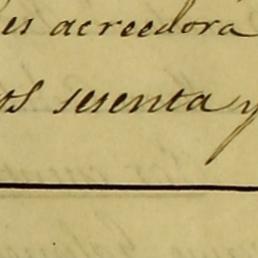 es acreedora
os sesenta y